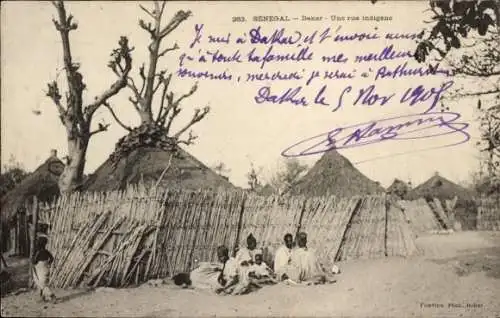 263. SÉNÉGAL — Dakar - Une rue indigène
Je suis à Dakar et t'envoie ainsi
qu'à toute ta famille mes meilleurs
souvenirs, mercredi je serai à
Dakar le 5 Nov 1905
Fortier, Phot. Dakar